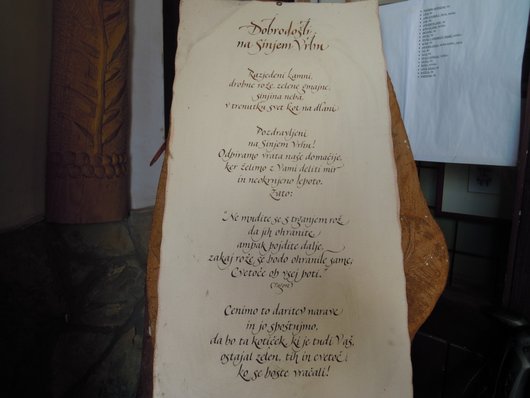 Dobrodošli
na Sinjem Vrhu
Razjedeni kamni,
drobne rože, zelene gmajne,
sinjina neba,
v trenutku svet kot na dlani.
Pozdravljeni
na Sinjem Vrhu!
Odpiramo vrata naše domačije,
ker želimo z Vami deliti mir
in neokrnjeno lepoto.
Zato:
"Ne mudite se s trganjem rož
da jih ohranite
ampak pojdite dalje,
zakaj rože se bodo ohranile same,
Cvetoče ob vsej poti."
(Tagore)
Cenimo to daritev narave
in jo spoštujmo,
da bo ta kotiček, ki je tudi Vaš,
ostajal zelen, tih in cvetoč
ko se boste vračali!